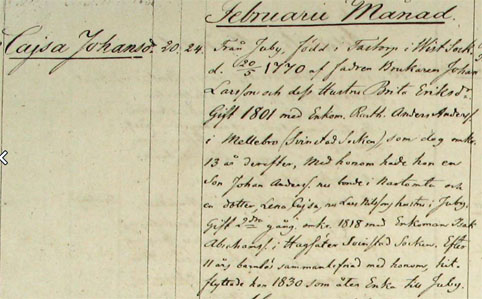 Februarii Månad.
Cajsa Johansdr 20. 24. Från Juby, född i Factorp i Wist Sock
d. 20/5 1770 af fadren Brukaren Johan
Larsson och dess Hustru Brita Eriksdr.
Gift 1801 med Enkom. Rusth. Anders Anderss.
i Mellebo (Svinstad Socken), som dog omkr.
13 år derefter, Med honom hade hon en
Son Johan Anderss. nu bonde i och
en dotter, Lena Cajsa, nu Lars Nilssons hustru i Juby.
Gift 2dra gång. omkr. 1818 med Enkoman Isak
Abrahamss. i Svinstad Socken. Efter
11 års barnlös sammanlefnad med honom, hit-
flyttade hon 1830 som åter Enka till Juby.